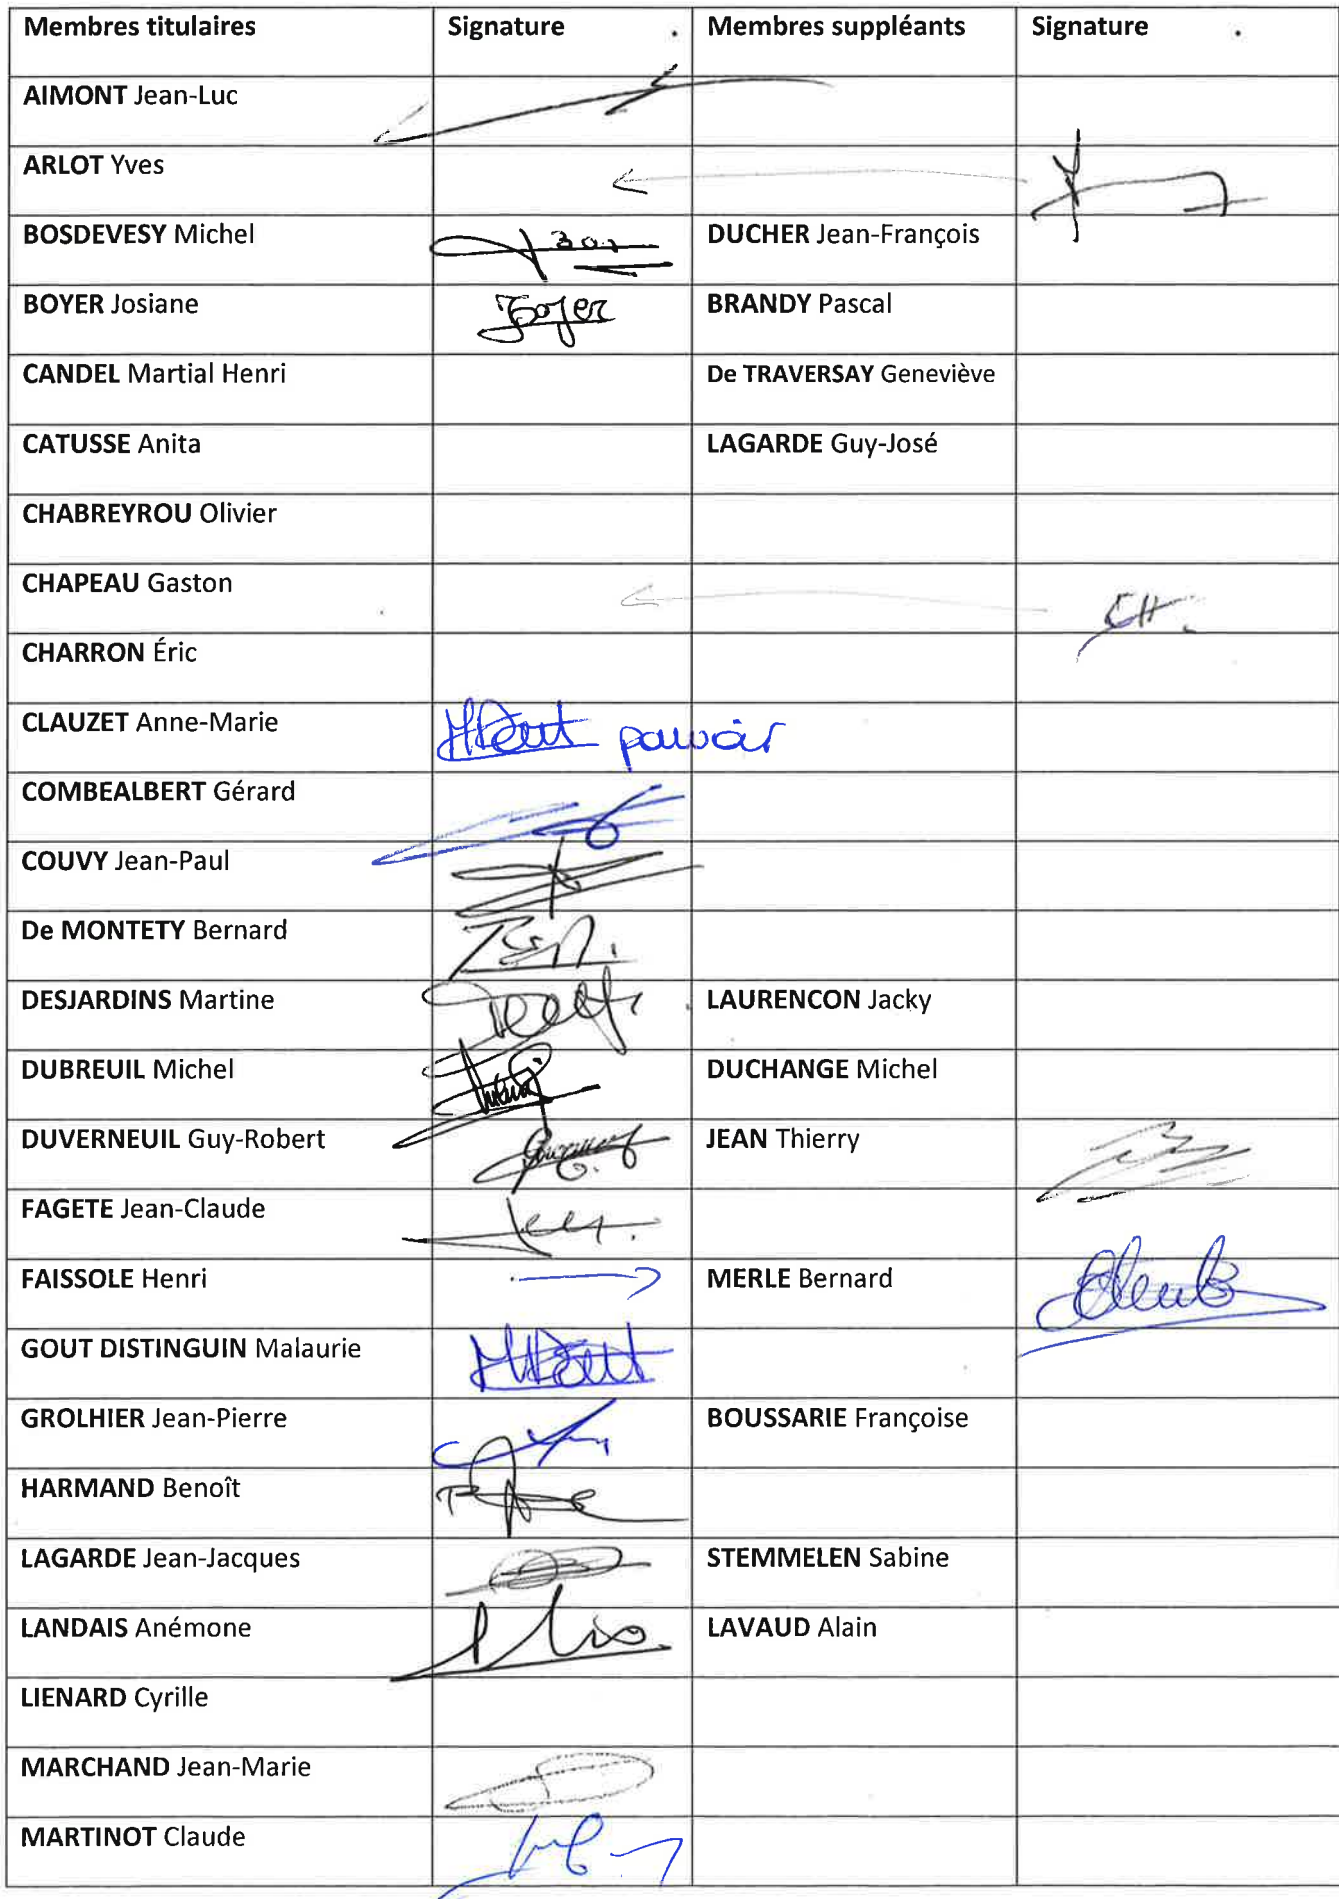 Membres titulaires Signature Membres suppléants Signature
AIMONT Jean-Luc
ARLOT Yves
BOSDEVESY Michel DUCHER Jean-François
BOYER Josiane Boyer BRANDY Pascal
CANDEL Martial Henri De TRAVERSAY Geneviève
CATUSSE Anita LAGARDE Guy-José
CHABREYROU Olivier
CHAPEAU Gaston
CHARRON Éric
CLAUZET Anne-Marie pouvoir
COMBEALBERT Gérard
COUVY Jean-Paul
De MONTETY Bernard
DESJARDINS Martine LAURENCON Jacky
DUBREUIL Michel DUCHANGE Michel
DUVERNEUIL Guy-Robert JEAN Thierry
FAGETE Jean-Claude
FAISSOLE Henri MERLE Bernard
GOUT DISTINGUIN Malaurie
GROLHIER Jean-Pierre BOUSSARIE Françoise
HARMAND Benoît
LAGARDE Jean-Jacques STEMMELEN Sabine
LANDAIS Anémone LAVAUD Alain
LIENARD Cyrille
MARCHAND Jean-Marie
MARTINOT Claude